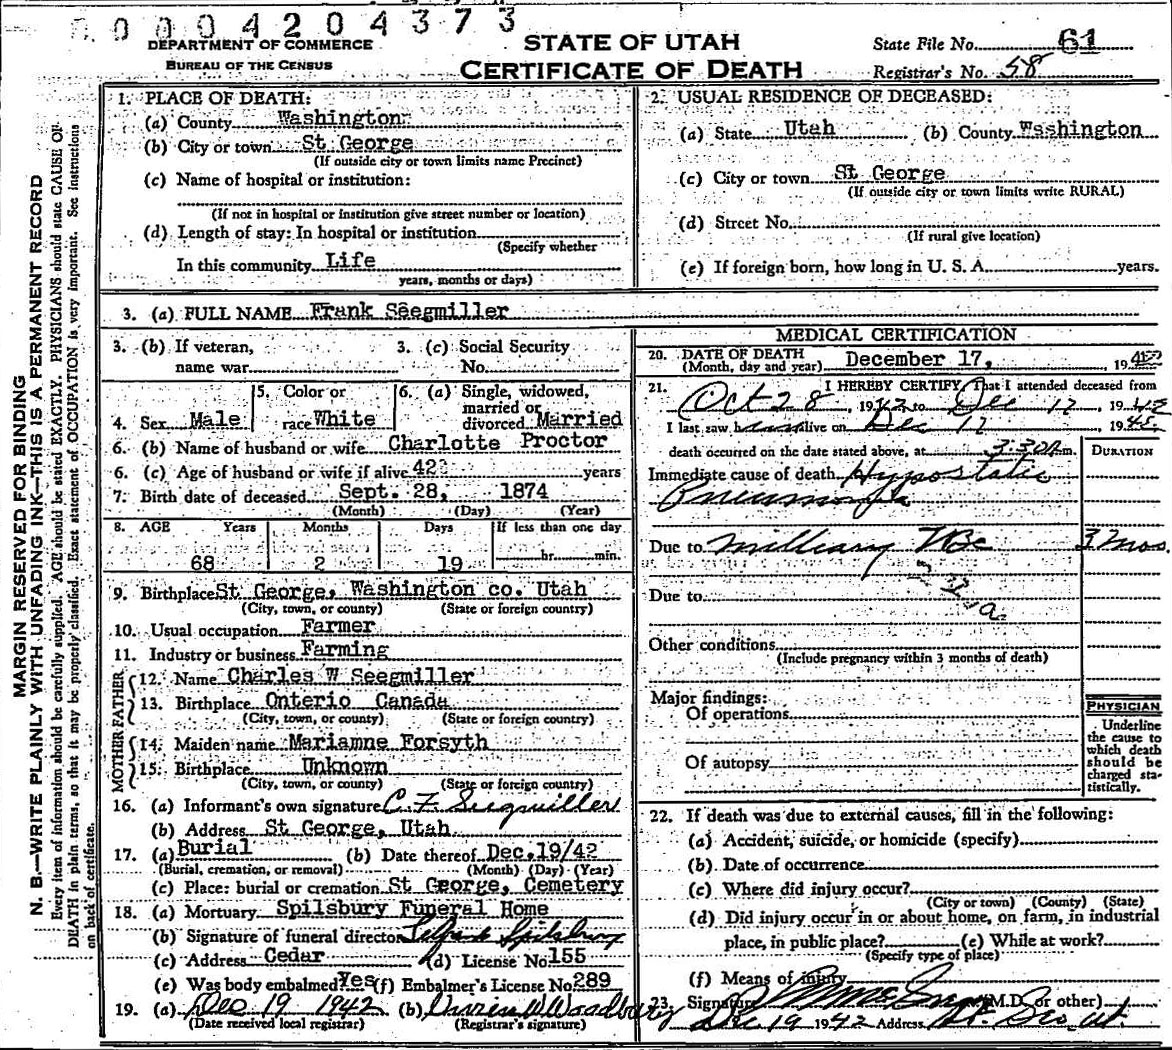 0004204373
DEPARTMENT OF COMMERCE
BUREAU OF THE CENSUS
STATE OF UTAH
CERTIFICATE OF DEATH
State File No. 61
Registrar's No. 58
MARGIN RESERVED FOR BINDING
N. B.—WRITE PLAINLY WITH UNFADING INK—THIS IS A PERMANENT RECORD
Every item of information should be carefully supplied. AGE should be stated EXACTLY. PHYSICIANS should state CAUSE OF
DEATH in plain terms, so that it may be properly classified. Exact statement of OCCUPATION is very important. See instructions
on back of certificate.
1. PLACE OF DEATH:
(a) County Washington
(b) City or town St George
(If outside city or town limits name Precinct)
(c) Name of hospital or institution:
(If not in hospital or institution give street number or location)
(d) Length of stay: In hospital or institution
(Specify whether
In this community Life
years, months or days)
2. USUAL RESIDENCE OF DECEASED:
(a) State Utah (b) County Washington
(c) City or town St George
(If outside city or town limits write RURAL)
(d) Street No.
(If rural give location)
(e) If foreign born, how long in U. S. A. years.
3. (a) FULL NAME Frank Seegmiller
3. (b) If veteran, name war
3. (c) Social Security No.
4. Sex Male
5. Color or race White
6. (a) Single, widowed, married or divorced Married
6. (b) Name of husband or wife Charlotte Proctor
6. (c) Age of husband or wife if alive 42 years
7. Birth date of deceased Sept. 28, 1874
(Month) (Day) (Year)
8. AGE Years Months Days If less than one day
68 2 19 hr. min.
9. Birthplace St George, Washington co. Utah
(City, town, or county) (State or foreign country)
10. Usual occupation Farmer
11. Industry or business Farming
FATHER
12. Name Charles W Seegmiller
13. Birthplace Onterio Canada
(City, town, or county) (State or foreign country)
MOTHER
14. Maiden name Mariamne Forsyth
15. Birthplace Unknown
(City, town, or county) (State or foreign country)
16. (a) Informant's own signature C. F. Seegmiller
(b) Address St George, Utah
17. (a) Burial (b) Date thereof Dec. 19/42
(Burial, cremation, or removal) (Month) (Day) (Year)
(c) Place: burial or cremation St George, Cemetery
18. (a) Mortuary Spilsbury Funeral Home
(b) Signature of funeral director Spilsbury
(c) Address Cedar (d) License No. 155
(e) Was body embalmed Yes (f) Embalmer's License No. 289
19. (a) Dec 19 1942 (b) W Woodbury
(Date received local registrar) (Registrar's signature)
MEDICAL CERTIFICATION
20. DATE OF DEATH December 17, 1942
(Month, day and year)
21. I HEREBY CERTIFY, That I attended deceased from
Oct 28, 1942 to Dec 17 1942
I last saw him alive on Dec 17 1942
death occurred on the date stated above, at 3:30 P.m.
DURATION
Immediate cause of death Hypostatic
Pneumonia
Due to milleary TBc 3 mos.
Due to
Other conditions
(Include pregnancy within 3 months of death)
Major findings:
Of operations
Of autopsy
PHYSICIAN
Underline
the cause to
which death
should be
charged sta-
tistically.
22. If death was due to external causes, fill in the following:
(a) Accident, suicide, or homicide (specify)
(b) Date of occurrence
(c) Where did injury occur?
(City or town) (County) (State)
(d) Did injury occur in or about home, on farm, in industrial
place, in public place? (e) While at work?
(Specify type of place)
(f) Means of injury
23. Signature (M.D. or other)
Dec 19 1942 Address St. Geo, Ut.